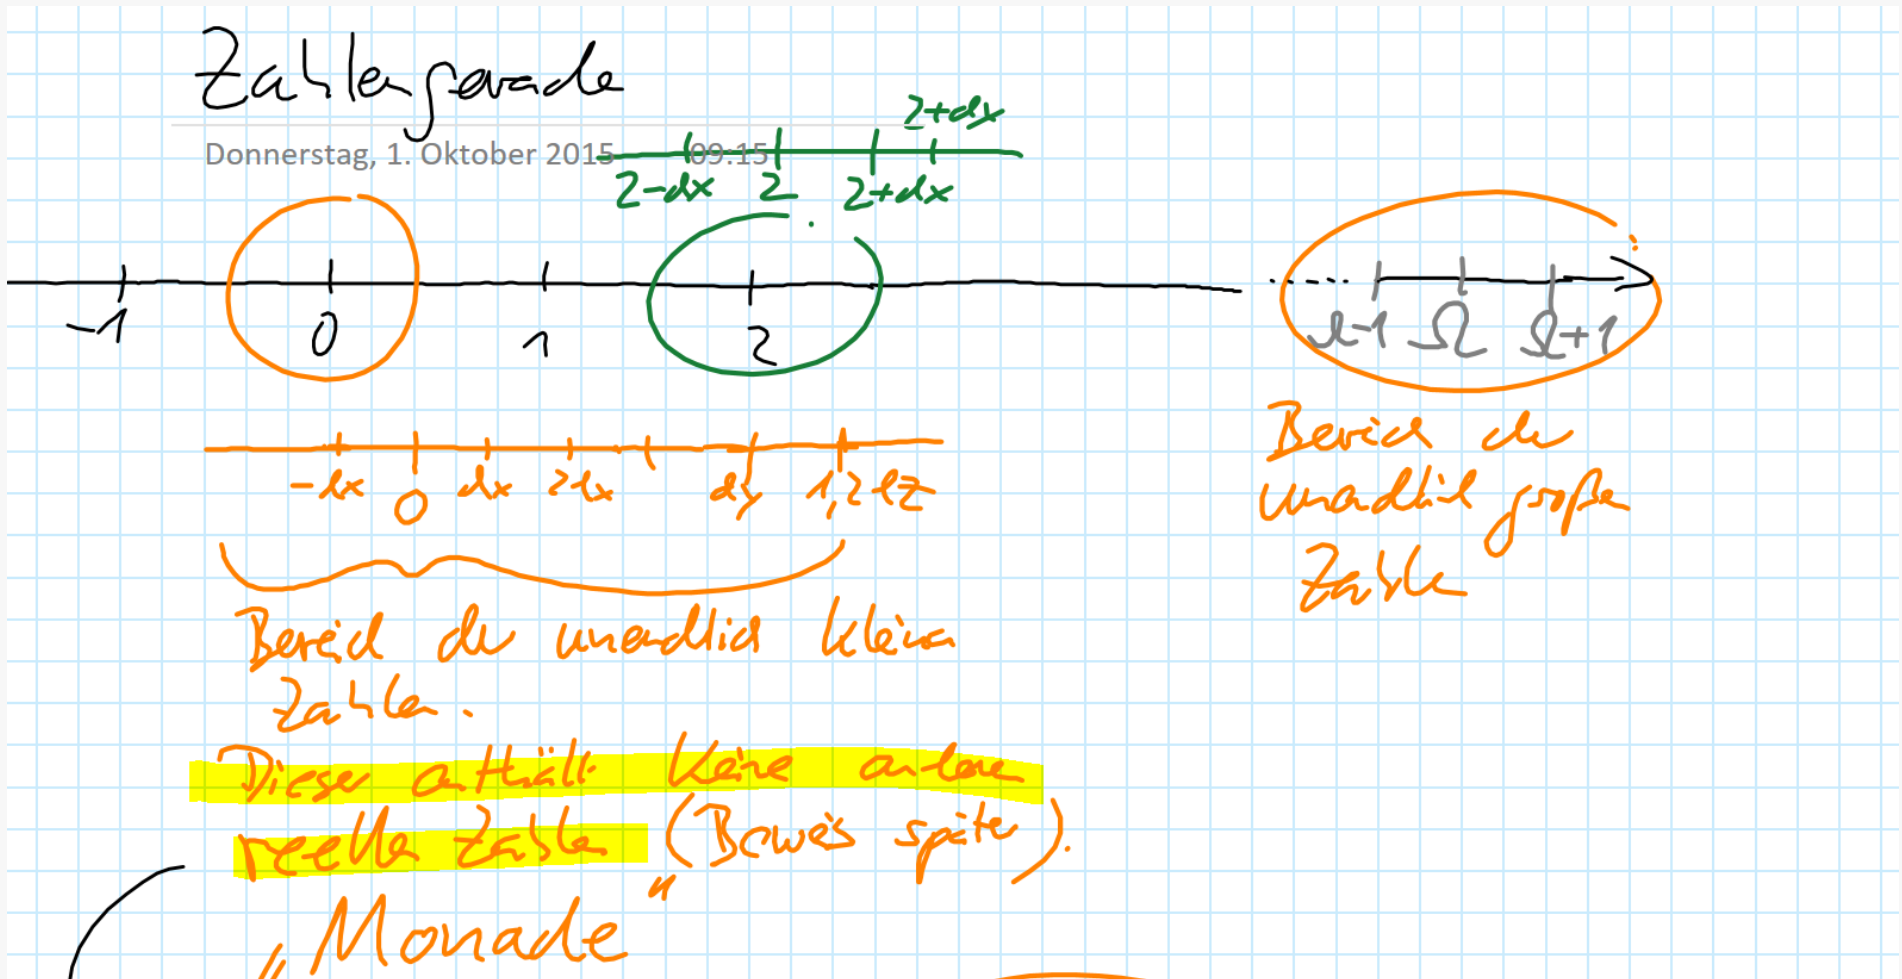 Zahlengerade
2+dx
Donnerstag, 1. Oktober 2015 09:15
2-dx 2 2+dx
-1 0 1 2 Ω-1 Ω Ω+1
-dx 0 dx 2dx dy 1,2 dz
Bereich der
unendlich großen
Zahlen
Bereich der unendlich kleinen
Zahlen.
Dieser enthält keine andere
reelle Zahlen (Beweis später).
„Monade“